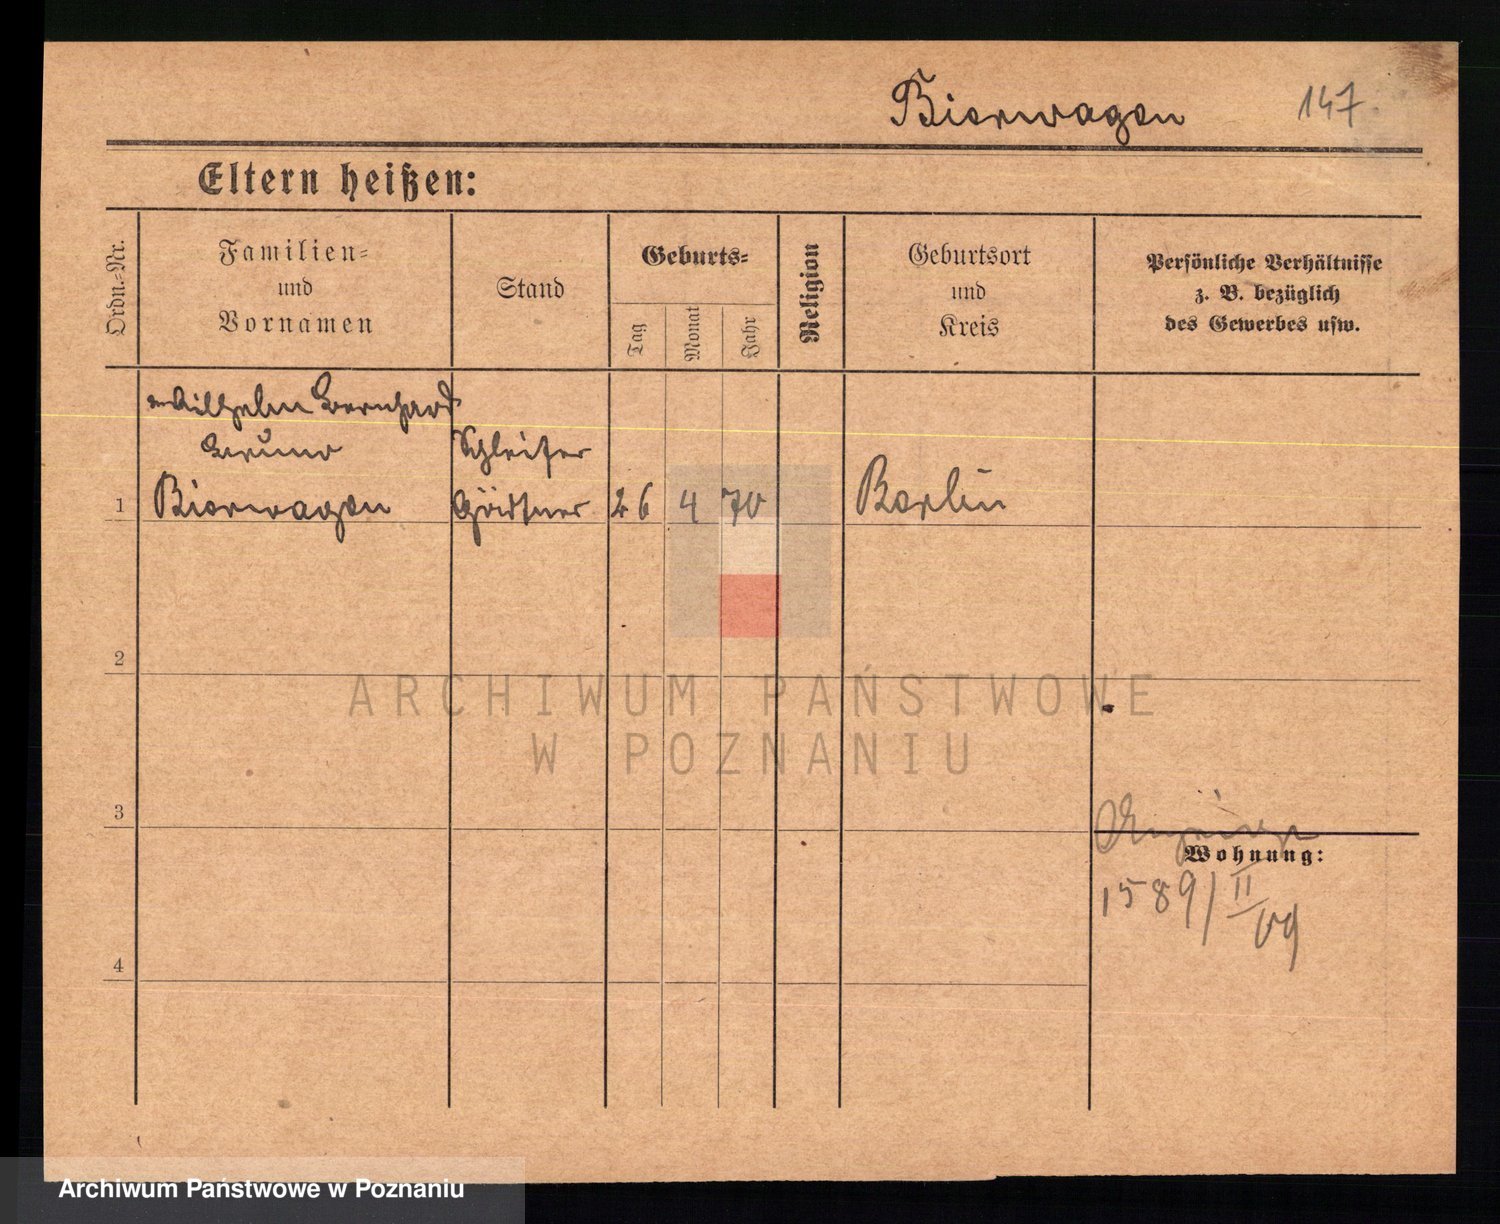 Bierwagen 147.
Eltern heißen:
Ordn.-Nr.
Familien-
und
Vornamen
Stand
Geburts-
Tag
Monat
Jahr
Religion
Geburtsort
und
Kreis
Persönliche Verhältnisse
z. B. bezüglich
des Gewerbes usw.
Wilhelm Bernhard
Bruno Schleifer
1 Bierwagen 26 4 70 Berlin
2
ARCHIWUM PAŃSTWOWE
W POZNANIU
3
Wohnung:
1589/II
09
4
Archiwum Państwowe w Poznaniu